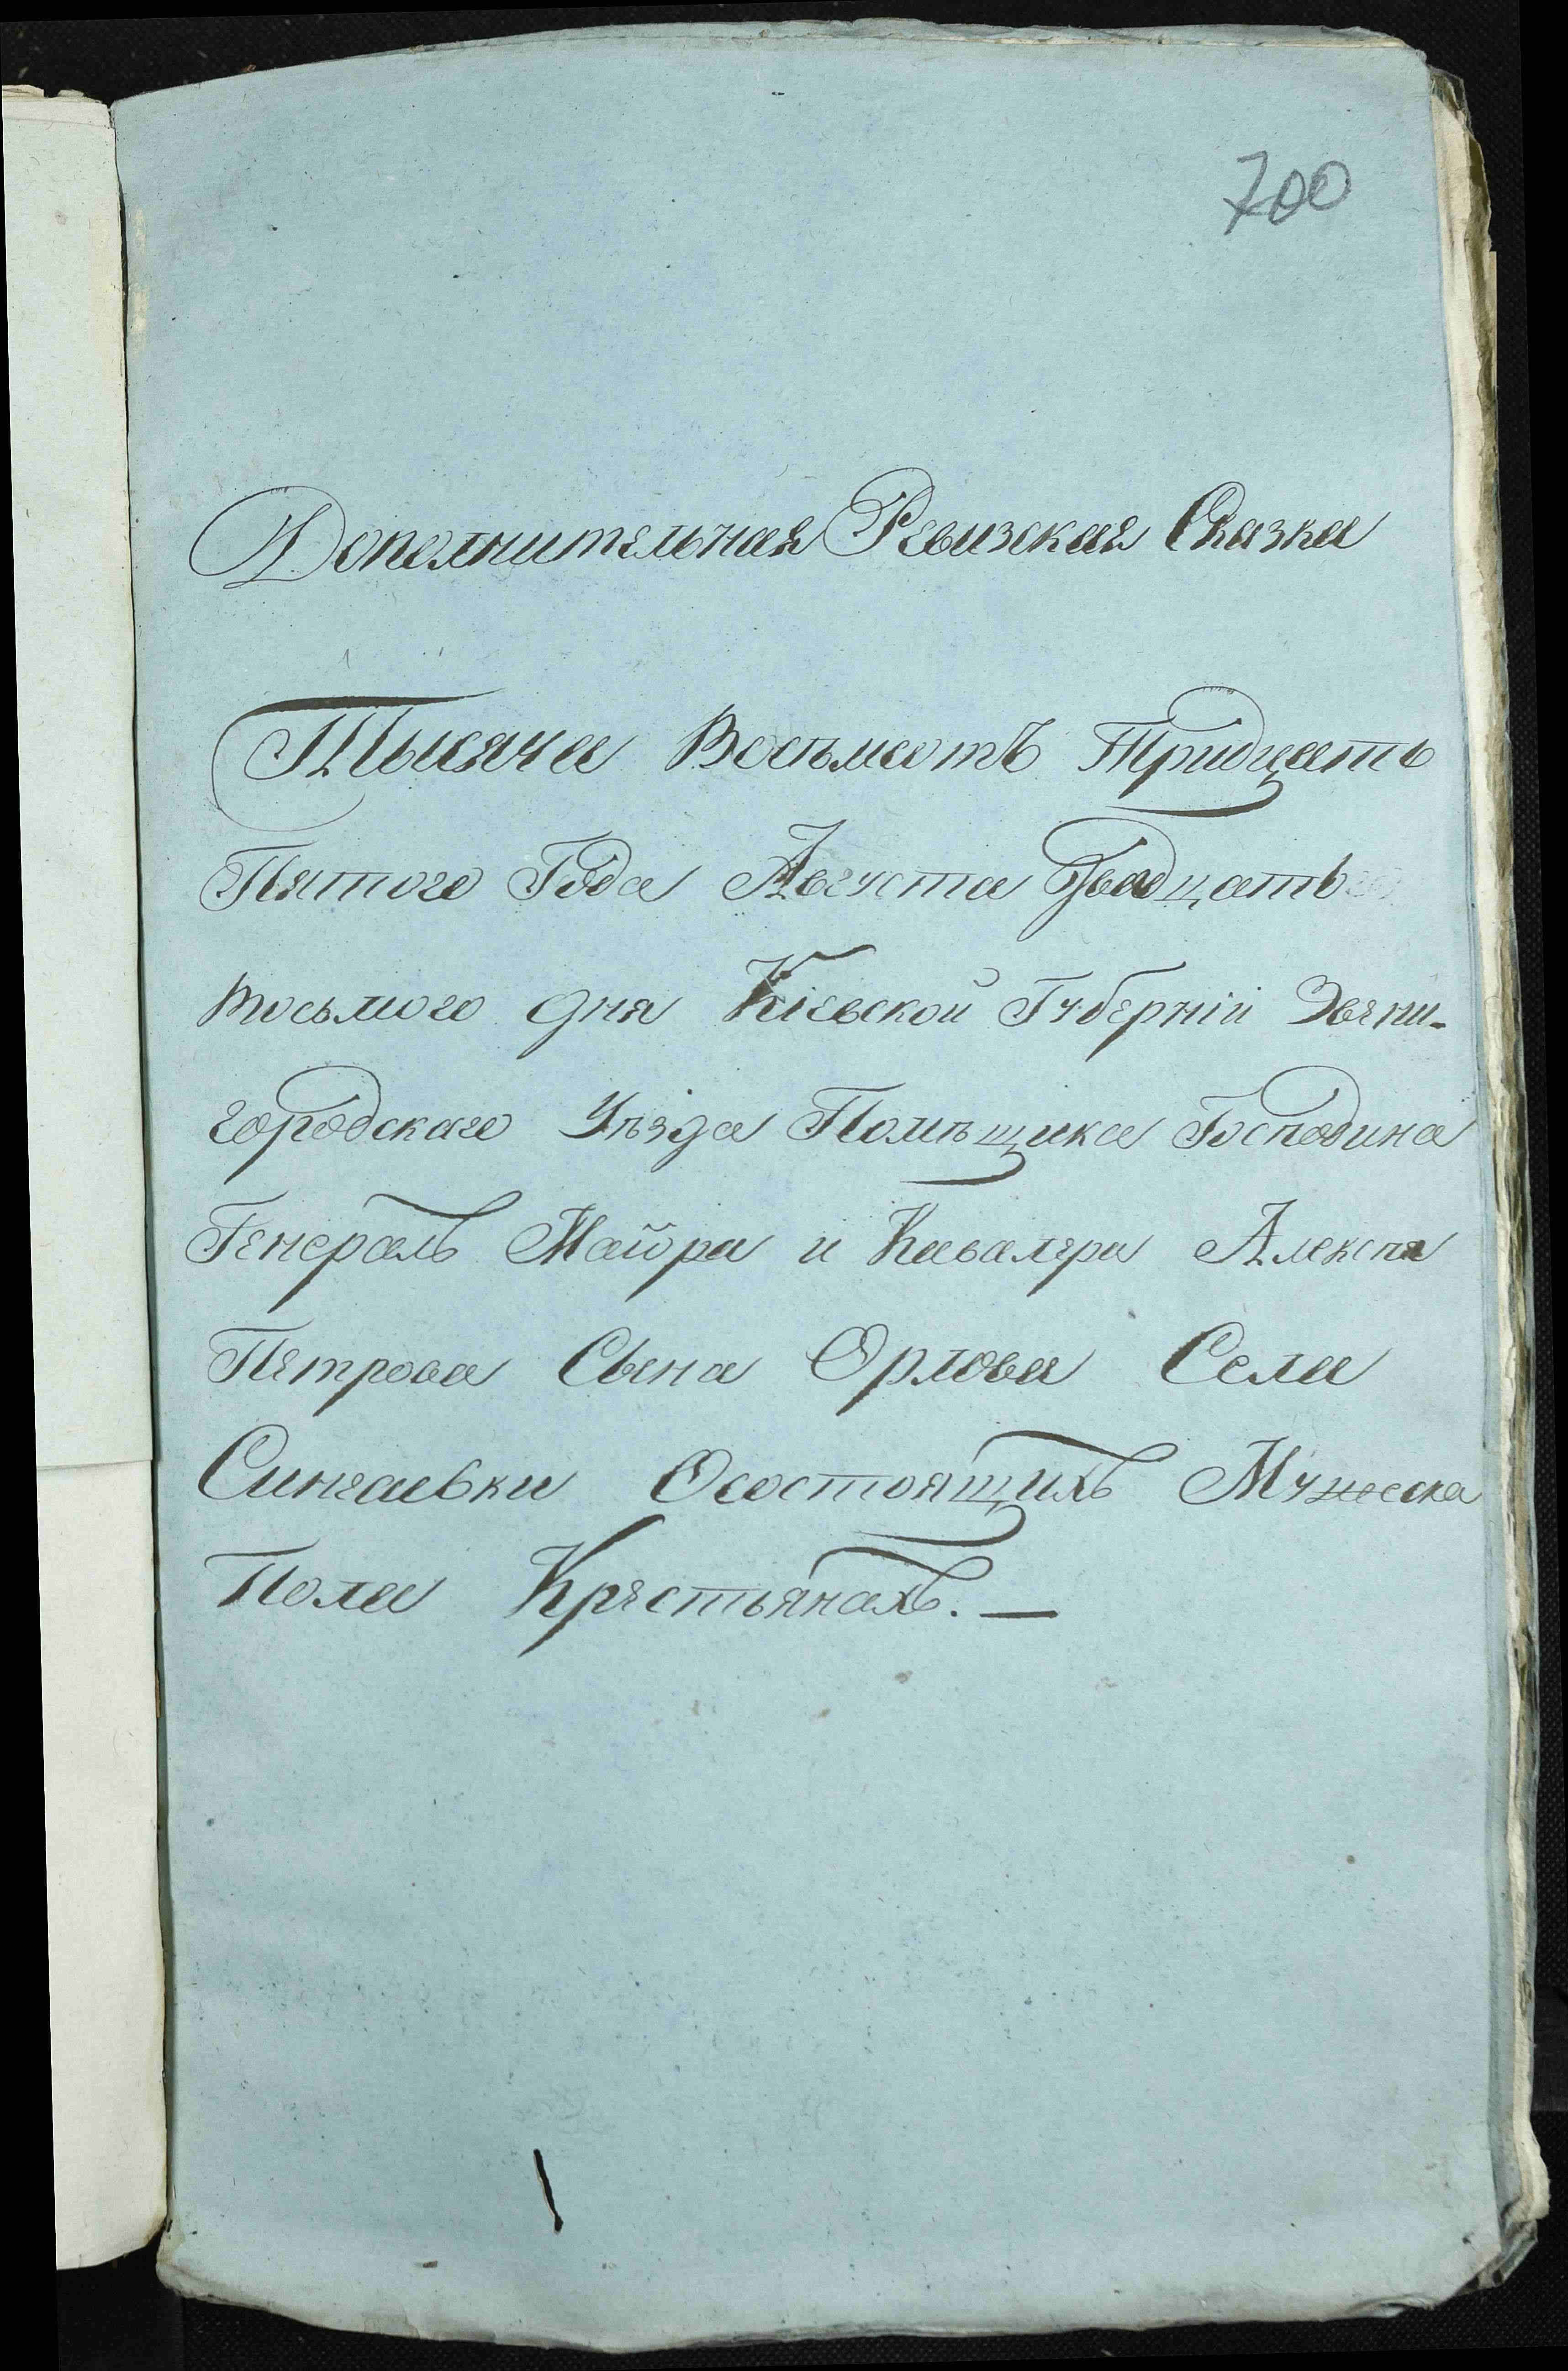 700
Дополнительная Ревизская Сказка
Тысяча Восьмсотъ Тридцать
Пятого Года Августа Двадцать
восьмого дня Кіевской Губерніи Звени-
городскаго Уѣзда Помѣщика Господина
Генералъ Маіора и Кавалера Алексѣя
Петрова Сына Орлова Села
Сингаевки Осостоящихъ Мужеска
Пола Крестьянахъ. —